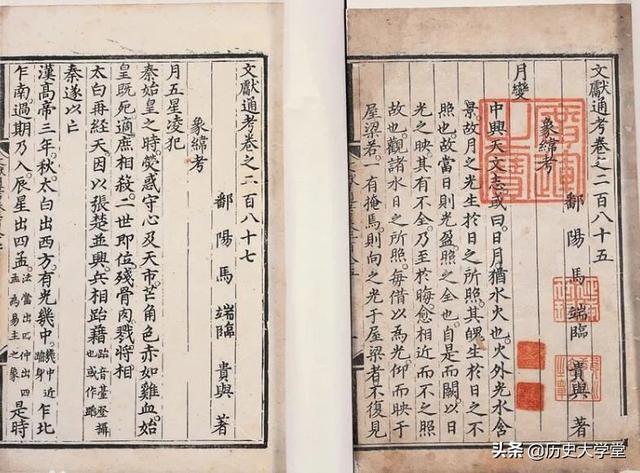 文獻通考卷之二百八十五
鄱陽馬端臨貴與著
象緯考
月變
中興天文志。或曰日月猶水火也。火外光水含
景。故月之光生於日之所照。其魄生於日之不
照也。故當日則光盈。照之全也。自是而闕。以日
光之映其有不全。乃至於晦愈相近而不之照
故也。觀諸水日之所照。每借以為光仰而映于
屋梁若。有掩焉。則向之光于屋梁者不復見
文獻通考卷之二百八十七
鄱陽馬端臨貴與著
象緯考
月五星凌犯
秦始皇之時。熒惑守心及天市。芒角色赤如雞血。始
皇既死。適庶相殺。二世即位殘骨肉戮將相
太白再經天因以張楚並興。兵相跆藉跆音臺登躡也或作蹈
秦遂以亡
漢高帝三年。秋。太白出西方。有光幾中。幾中近踰身乍北
乍南。過期乃入。辰星出四孟。法當出四仲出四孟為易主之象是時
头条@历史大学堂